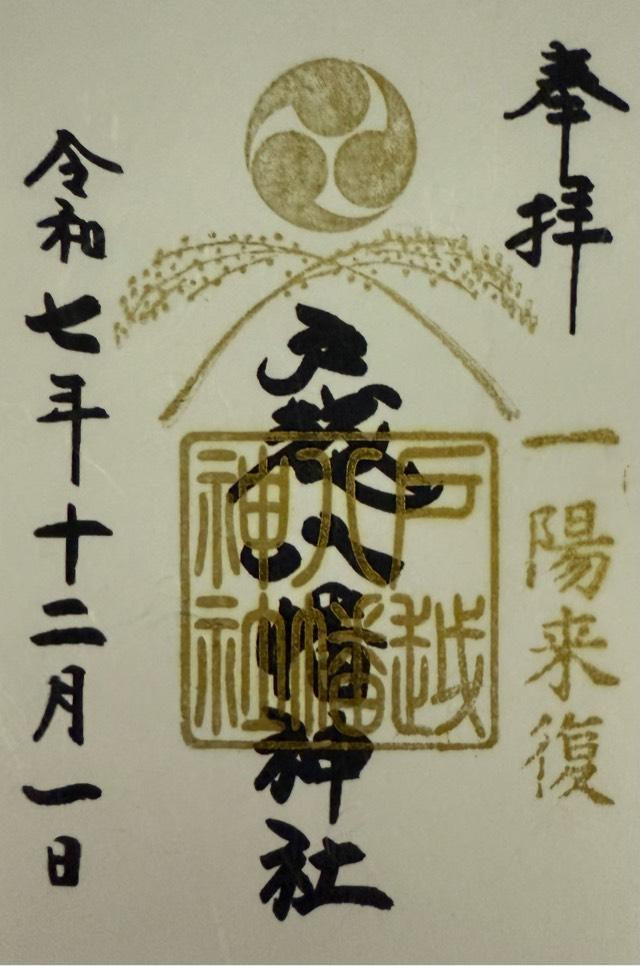 奉拝
一陽来復
戸越八幡神社
戸越
八幡
神社
令和七年十二月一日